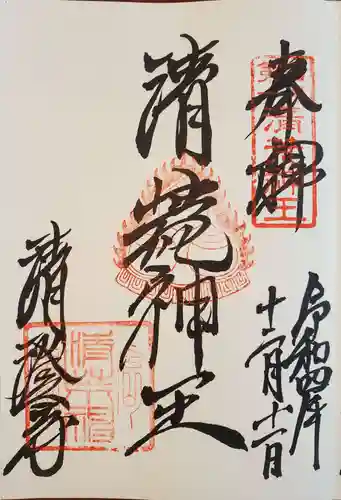 奉拝
令和四年
十二月十一日
清荒神王
清澄寺